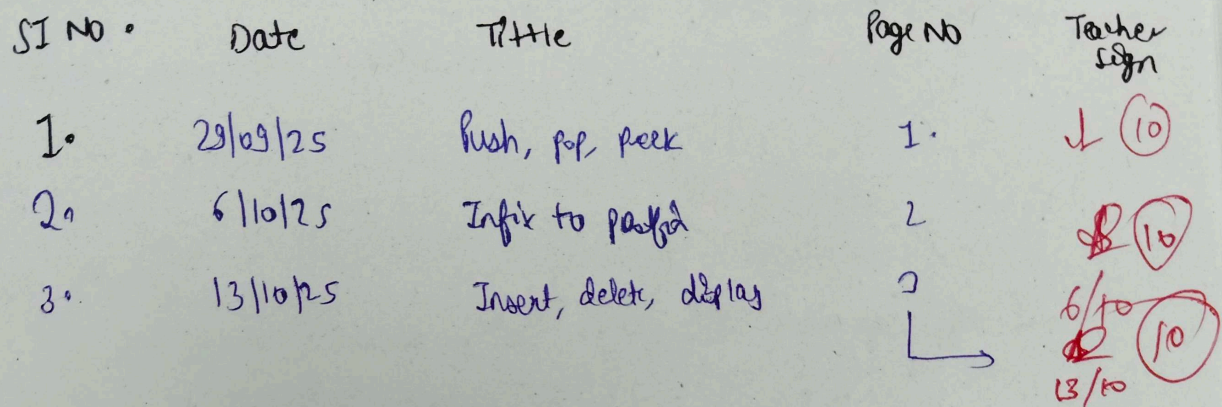 SI NO. Date Tittle Page No Teacher Sign
1. 29/09/25 Push, pop, peek 1. 10
2. 6/10/25 Infix to 2 10
6/10
3. 13/10/25 Insert, delete, display 3 10
13/10